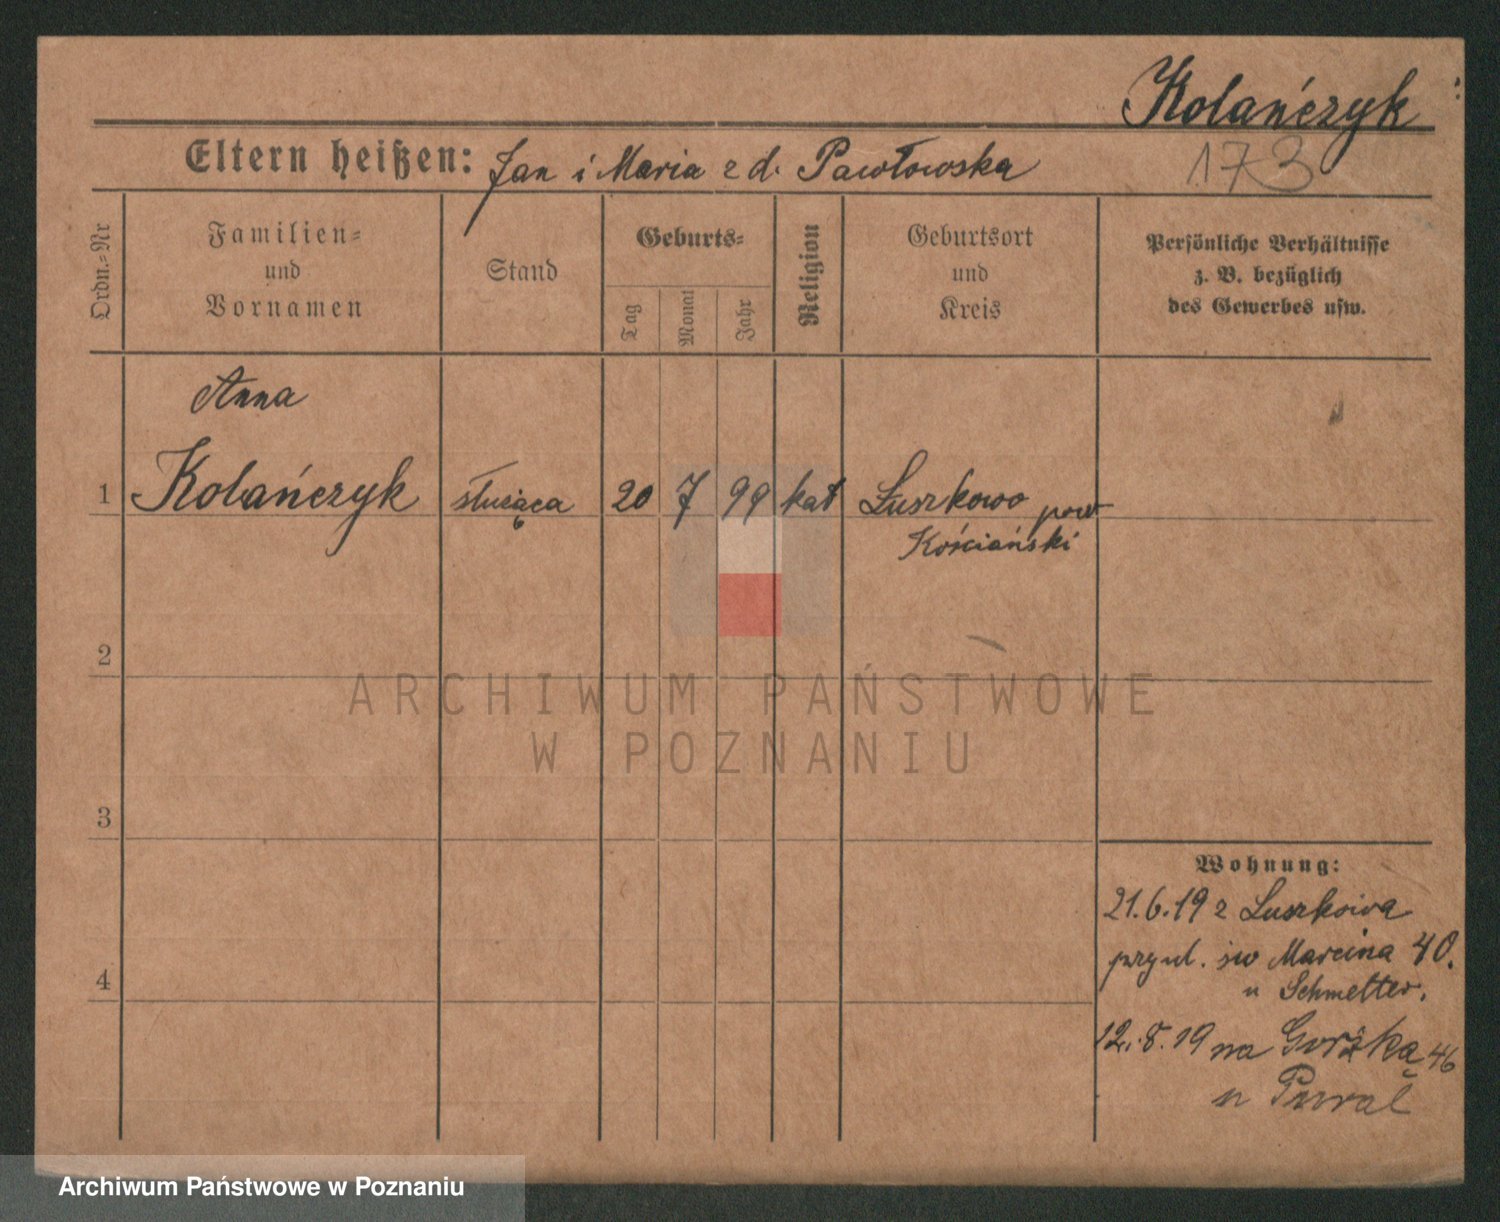 Kolańczyk
173
Eltern heißen: Jan i Maria z d. Pawłowska
Ordn.=Nr
Familien=
und
Vornamen
Stand
Geburts=
Tag
Monat
Jahr
Religion
Geburtsort
und
Kreis
Persönliche Verhältnisse
z. B. bezüglich
des Gewerbes usw.
Anna
1 Kolańczyk służąca 20 7 99 kat Łuszkowo pow
Kościański
2
3
4
Wohnung:
21.6.19 z Łuszkowa
przy ul. św Marcina 40.
u Schmelter.
12.8.19 na Gorżką 46
u
ARCHIWUM PAŃSTWOWE
W POZNANIU
Archiwum Państwowe w Poznaniu